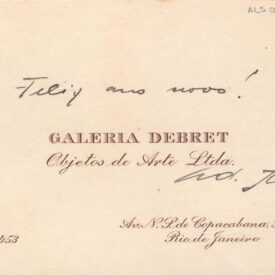 ALS
Feliz ano novo!
GALERIA DEBRET
Objetos de Arte Ltda.
Av. N. S. de Copacabana,
453
Rio de Janeiro